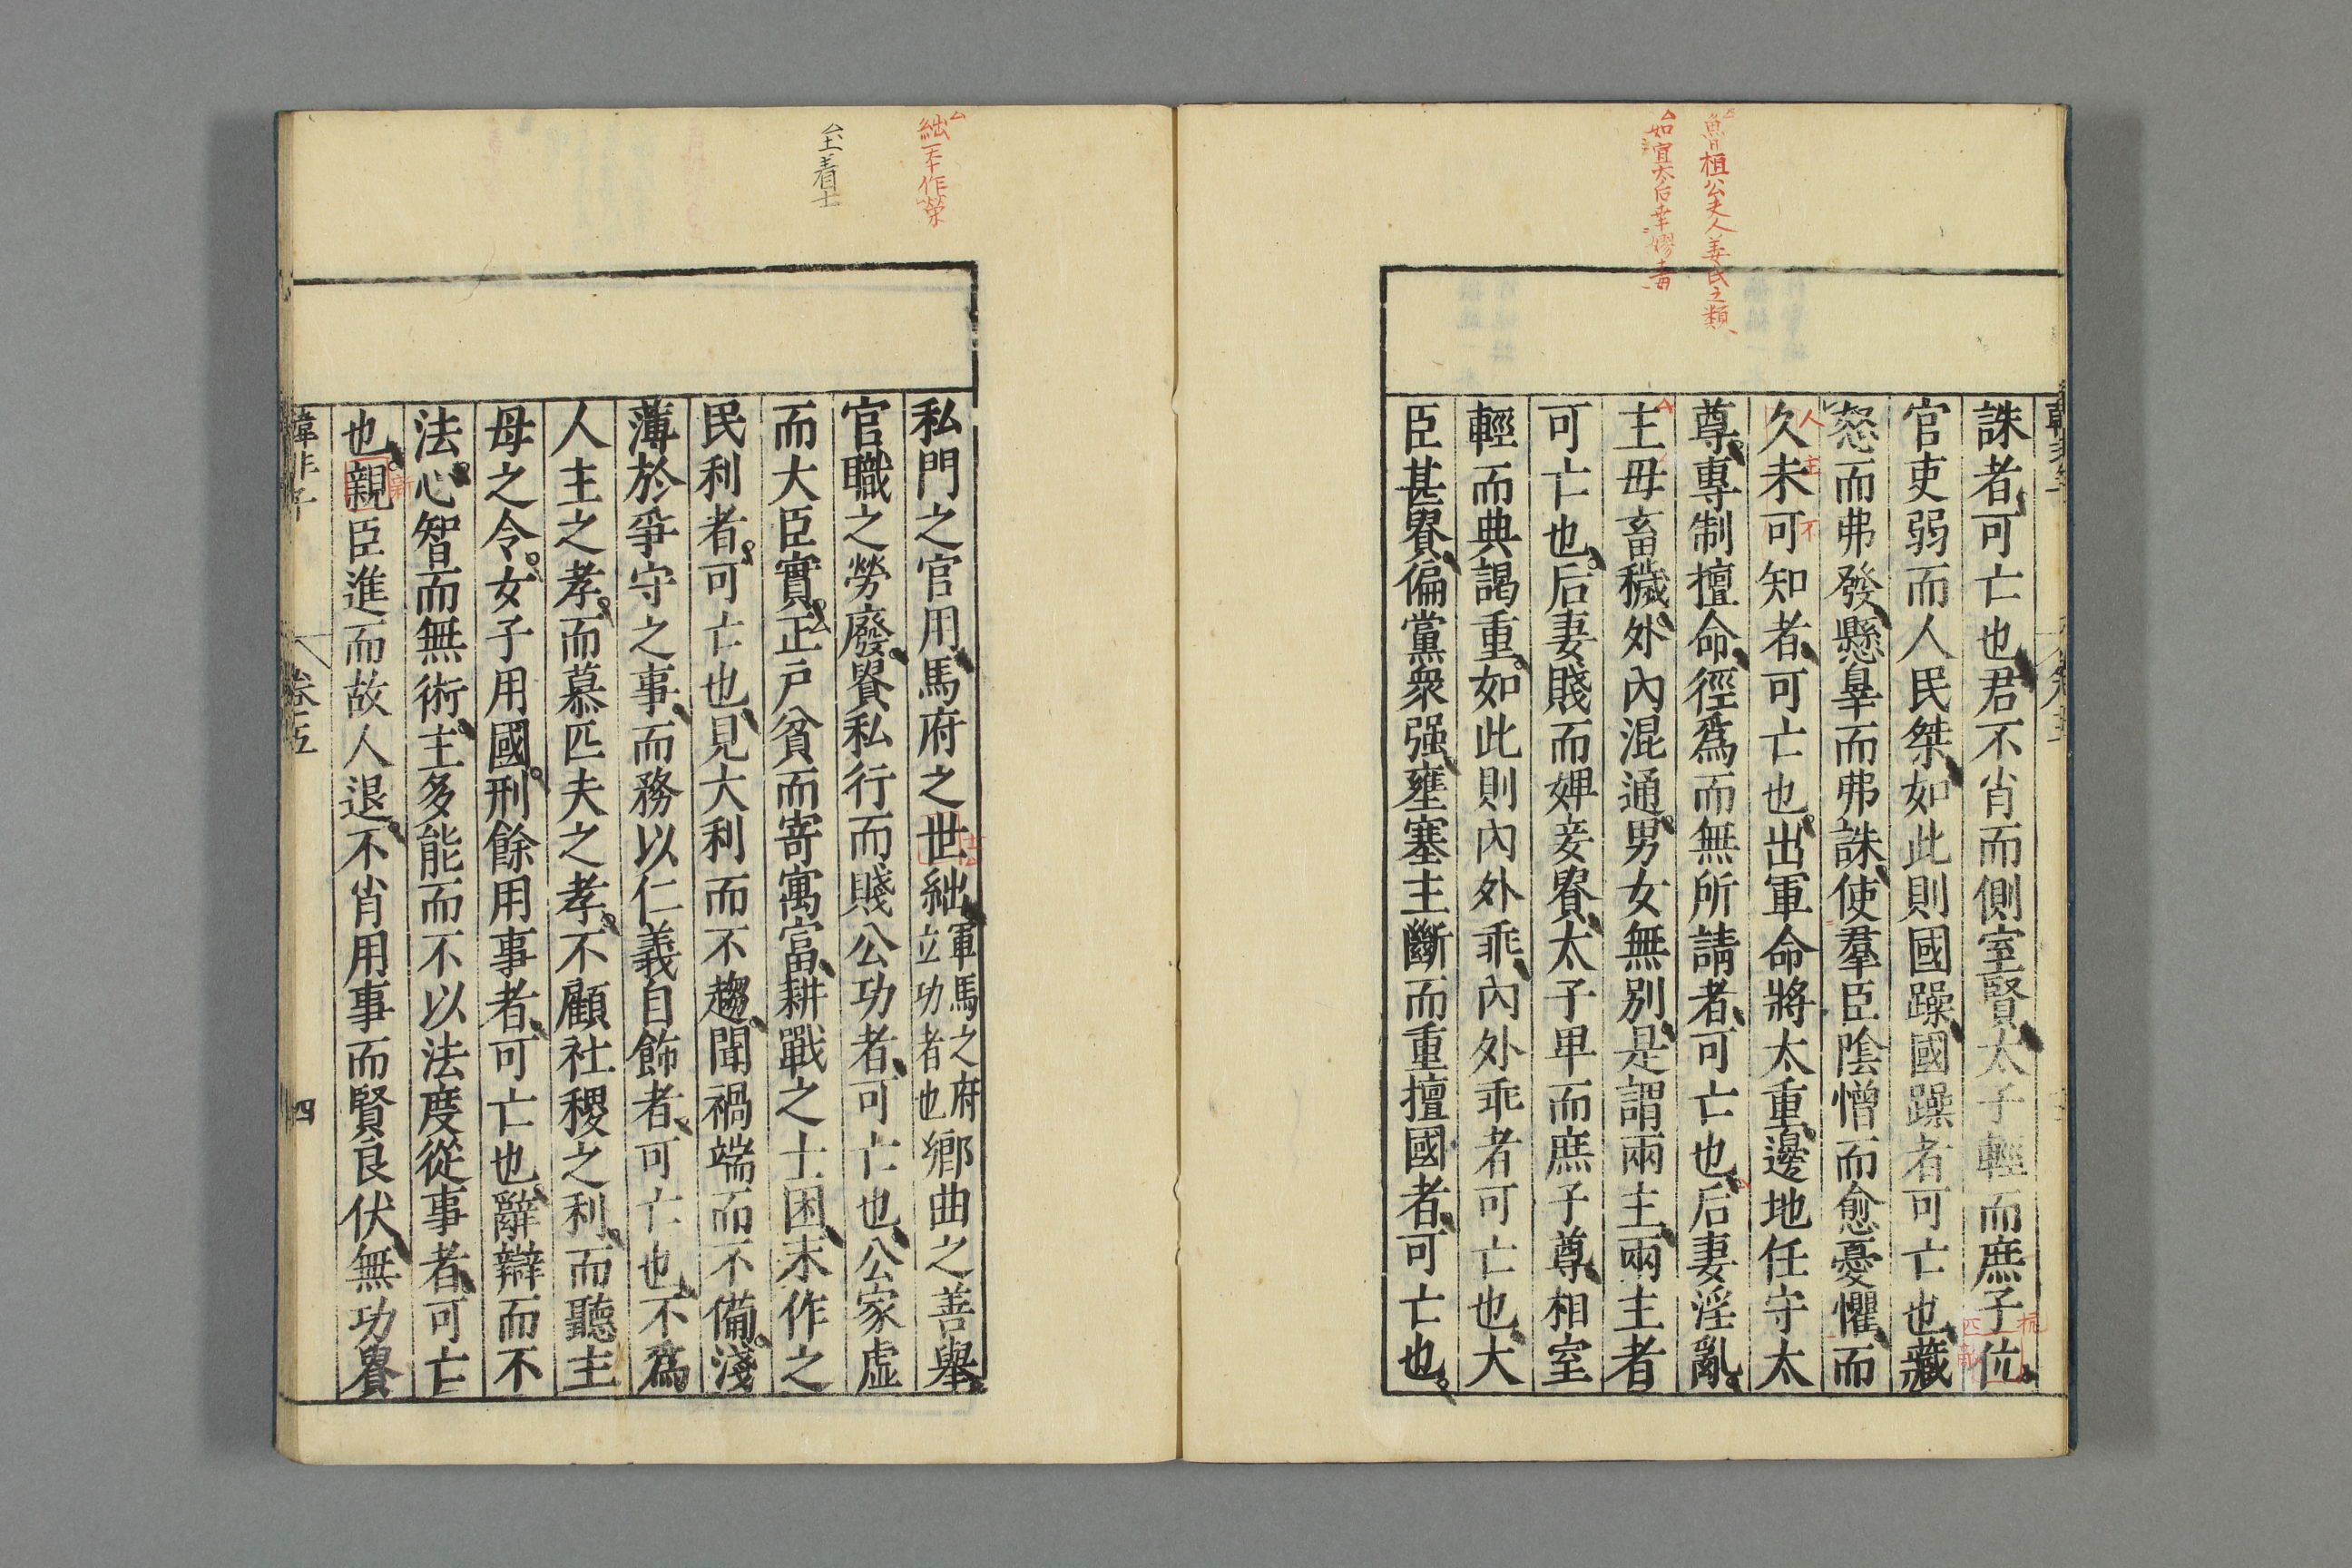 魯桓公夫人姜氏之類
如宣太后幸嫪毒
誅者可亡也君不肖而側室賢太子輕而庶子伉
官吏弱而人民桀如此則國躁國躁者可亡也藏
怒而弗發懸辠而弗誅使羣臣陰憎而愈憂懼而
久未可知者可亡也出軍命將太重邊地任守太
人主不
尊專制擅命徑爲而無所請者可亡也后妻淫亂
主母畜穢外內混通男女無別是謂兩主兩主者
可亡也后妻賤而婢妾貴太子卑而庶子尊相室
輕而典謁重如此則內外乖內外乖者可亡也大
臣甚貴偏黨衆强壅塞主斷而重擅國者可亡也
絀一本作荣
私門之官用馬府之世絀軍馬之府立功者也鄉曲之善舉
官職之勞廢貴私行而賤公功者可亡也公家虛
而大臣實正戶貧而寄寓富耕戰之士困末作之
民利者可亡也見大利而不趨聞禍端而不備淺
薄於爭守之事而務以仁義自飾者可亡也不爲
人主之孝而慕匹夫之孝不顧社稷之利而聽主
母之令女子用國刑餘用事者可亡也辭辯而不
法心智而無術主多能而不以法度從事者可亡
也親臣進而故人退不肖用事而賢良伏無功貴
新
韓非子
卷五
四